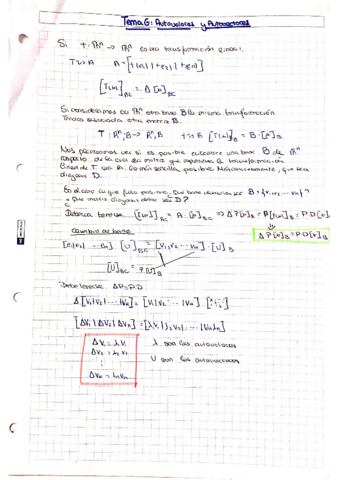 Tema 6: Autovalores y Autovectores
Si t: ℝⁿ → ℝⁿ es una transformación lineal.
T ~> A    A = [t(e₁) | t(e₂) | t(en)]
[T(u)]BC = A [u]BC
Si consideramos en ℝⁿ otra base B la misma transformación
asociada otra matriz B.
T ℝⁿ, B → ℝⁿ, B    t ~> B [T(u)]B = B · [u]B
Nos planteamos ver si es posible encontrar una base B de ℝⁿ
respecto de la cual la matriz que representa la transformación
lineal de T sea lo más sencilla posible. que sea
diagonal D.
En el caso en que fuera posible, qué base B = {v₁, v₂, ... vn}?
¿Que matriz diagonal debe ser D?
[T(u)]BC = A · [u]BC ⇒ A P [u]B = P [T(u)]B = P · D [u]B
A P [u]B = P · D [u]B
Cambio de base
[e₁ e₂ | ... en] · [U]BC = [v₁, v₂ ... vn] · [U]B
[U]BC = P [U]B
Debe tenerse AP = P·D
A [v₁ | v₂ | ... | vn] = [v₁ | v₂ | ... | vn] ·
[Av₁ | Av₂ | Avn] = [λ₁v₁ | λ₂v₂ | ... | vnλn]
Av₁ = λ₁v₁    λ son los autovalores
Av₂ = λ₂v₂
⋮    U son los autovectores
Avn = λnvn